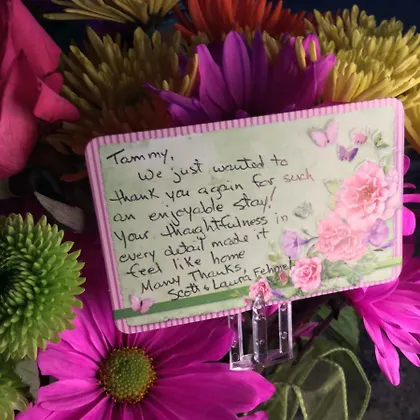 Tammy,
We just wanted to
thank you again for such
an enjoyable stay!
Your thoughtfulness in
every detail made it
feel like home
Many Thanks,
Scott & Laura